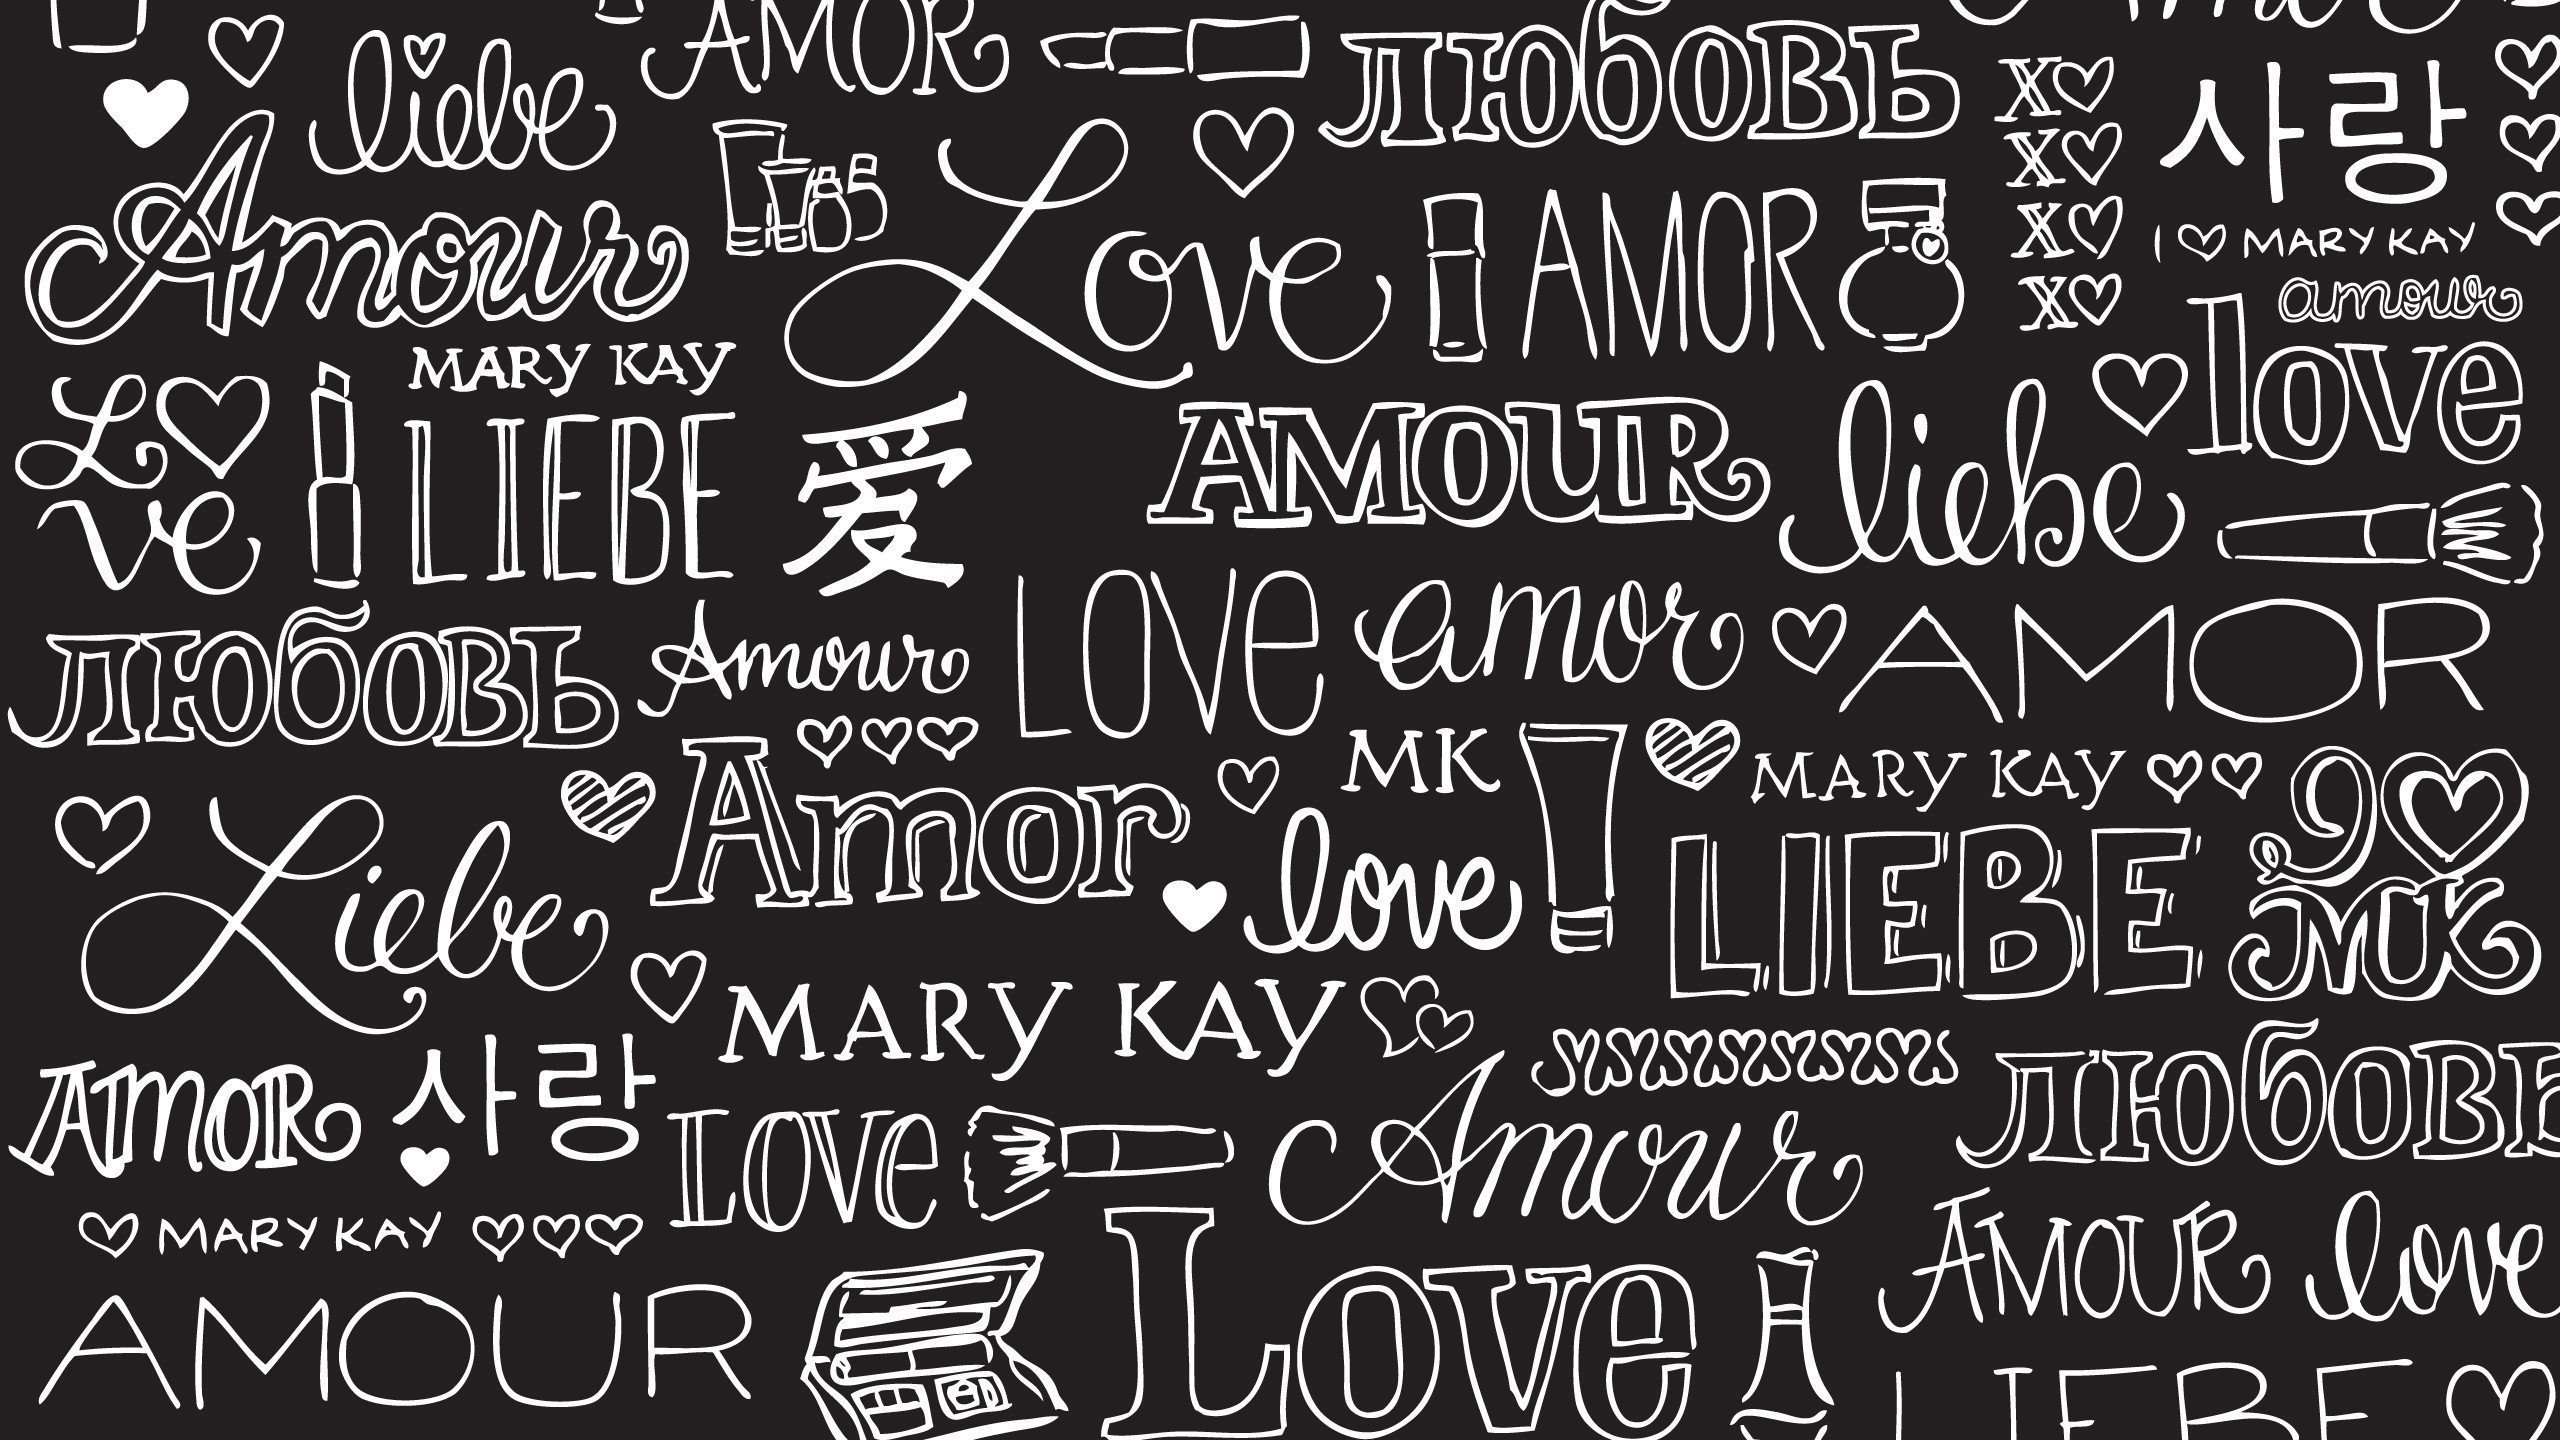 AMOR
любовь
liebe
x
사랑
x
Amour
Love
AMOR
x
I MARY KAY
x
amour
MARY KAY
love
L
ve
LIEBE
爱
AMOUR
liebe
LOVe
amor
AMOR
любовь
Amour
MK
MARY KAY
Amor
Liebe
love
LIEBE
MK
MARY KAY
AMOR
사랑
LOVe
Amour
любовь
MARY KAY
AMOUR
love
AMOUR
Love
LIEBE